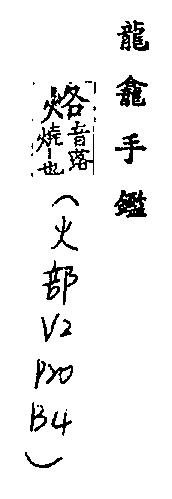 龍龕手鑑
烙音落燒丨也
(火部V2P20B4)